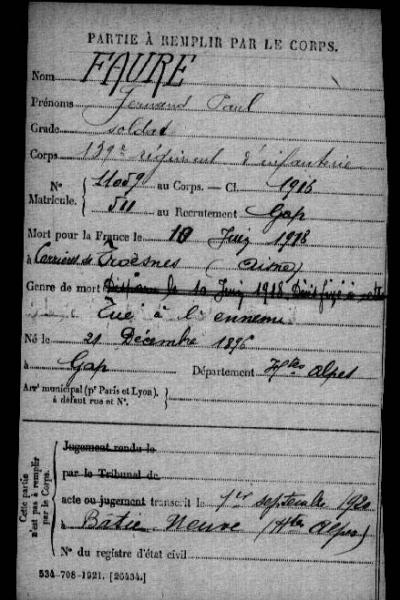 PARTIE À REMPLIR PAR LE CORPS.
Nom FAURE
Prénoms Fernand Paul
Grade soldat
Corps 139e régiment d'infanterie
N° Matricule. { 11059 au Corps. — Cl. 1916
511 au Recrutement Gap
Mort pour la France le 10 Juin 1918
à Carrières de Troesnes (Aisne)
Genre de mort Disparu le 10 Juin 1918 Décès fixé à cette
Tué à l'ennemi
Né le 21 Décembre 1896
à Gap Département Htes Alpes
Arrt municipal (pr Paris et Lyon), à défaut rue et N°. {
Cette partie n'est pas à remplir par le Corps.
Jugement rendu le
par le Tribunal de
acte ou jugement transcrit le 1er septembre 1920
à Batie Neuve (Htes Alpes)
N° du registre d'état civil
534-708-1921. [26434.]